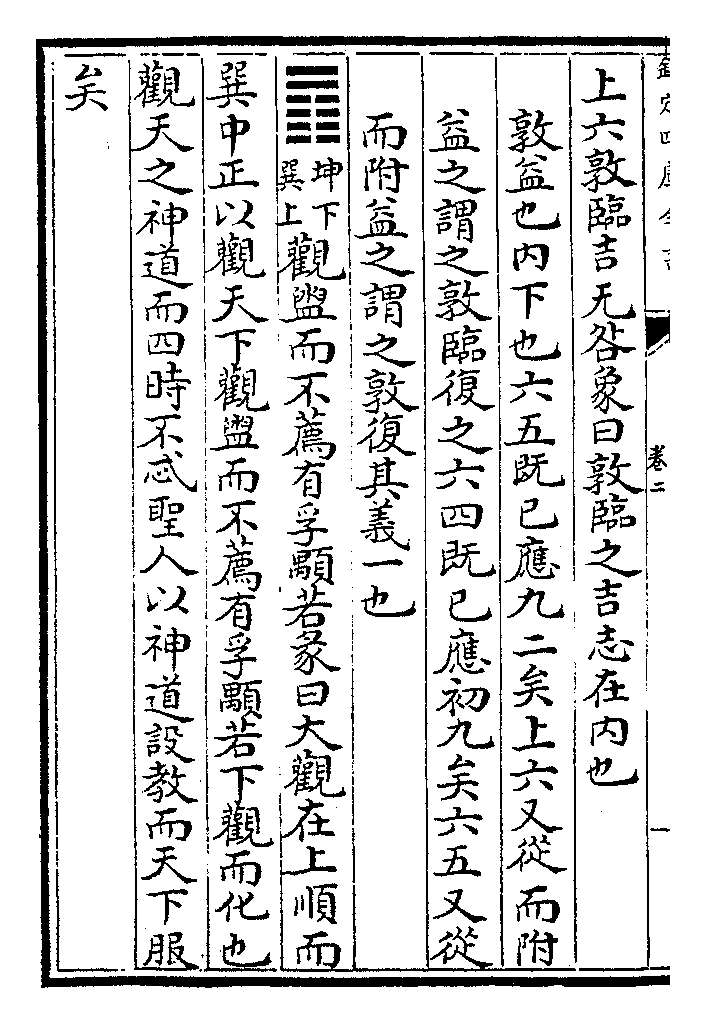 上六敦臨吉无咎象曰敦臨之吉志在内也
敦益也内下也六五既已應九二矣上六又從而附
益之謂之敦臨復之六四既已應初九矣六五又從
而附益之謂之敦復其義一也
䷓坤下巽上觀盥而不薦有孚顒若彖曰大觀在上順而
巽中正以觀天下觀盥而不薦有孚顒若下觀而化也
觀天之神道而四時不忒聖人以神道設教而天下服
矣
卷二